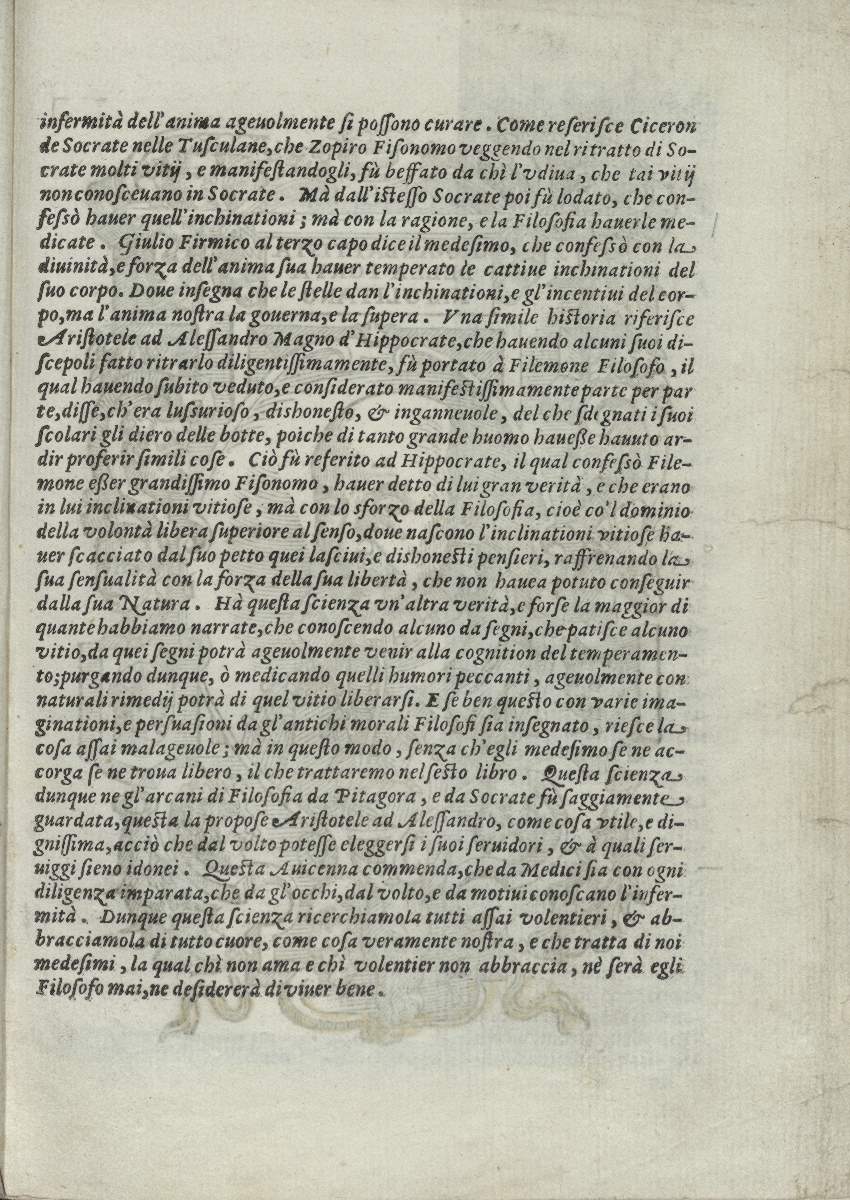 infermità dell'anima ageuolmente ſi poſſono curare. Come referiſce Ciceron
de Socrate nelle Tuſculane, che Zopiro Fiſonomo veggendo nel ritratto di So-
crate molti vitij, e manifeſtandogli, fù beffato da chì l'vdiua, che tai vitij
non conoſceuano in Socrate. Mà dall'iſteſſo Socrate poi fù lodato, che con-
feſsò hauer quell'inchinationi; mà con la ragione, e la Filoſofia hauerle me-
dicate. Giulio Firmico al terzo capo dice il medeſimo, che confeſsò con la
diuinità, e forza dell'anima ſua hauer temperato le cattiue inchinationi del
ſuo corpo. Doue inſegna che le ſtelle dan l'inchinationi, e gl'incentiui del cor-
po, ma l'anima noſtra la gouerna, e la ſupera. Vna ſimile hiſtoria riferiſce
Ariſtotele ad Aleſſandro Magno d'Hippocrate, che hauendo alcuni ſuoi di-
ſcepoli fatto ritrarlo diligentiſſimamente, fù portato à Filemone Filoſofo, il
qual hauendo ſubito veduto, e conſiderato manifeſtiſſimamente parte per par
te, diſſe, ch'era luſſurioſo, dishoneſto, & inganneuole, del che ſdegnati i ſuoi
ſcolari gli diero delle botte, poiche di tanto grande huomo haueße hauuto ar-
dir proferir ſimili coſe. Ciò fù referito ad Hippocrate, il qual confeſsò File-
mone eßer grandiſſimo Fiſonomo, hauer detto di lui gran verità, e che erano
in lui inclinationi vitioſe, mà con lo sforzo della Filoſofia, cioè co'l dominio
della volontà libera ſuperiore al ſenſo, doue naſcono l'inclinationi vitioſe ha-
uer ſcacciato dal ſuo petto quei laſciui, e dishoneſti penſieri, raffrenando la
ſua ſenſualità con la forza della ſua libertà, che non hauea potuto conſeguir
dalla ſua Natura. Hà queſta ſcienza vn'altra verità, e forſe la maggior di
quante habbiamo narrate, che conoſcendo alcuno da ſegni, che patiſce alcuno
vitio, da quei ſegni potrà ageuolmente venir alla cognition del temperamen-
to; purgando dunque, ò medicando quelli humori peccanti, ageuolmente con
naturali rimedij potrà di quel vitio liberarſi. E ſe ben queſto con varie ima-
ginationi, e perſuaſioni da gl'antichi morali Filoſofi ſia inſegnato, rieſce la
coſa aſſai malageuole; mà in queſto modo, ſenza ch'egli medeſimo ſe ne ac-
corga ſe ne troua libero, il che trattaremo nel ſeſto libro. Queſta ſcienza
dunque ne gl'arcani di Filoſofia da Pitagora, e da Socrate fù ſaggiamente
guardata, queſta la propoſe Ariſtotele ad Aleſſandro, come coſa vtile, e di-
gniſſima, acciò che dal volto poteſſe eleggerſi i ſuoi ſeruidori, & à quali ſer-
uiggi ſieno idonei. Queſta Auicenna commenda, che da Medici ſia con ogni
diligenza imparata, che da gl'occhi, dal volto, e da motiui conoſcano l'infer-
mità. Dunque queſta ſcienza ricerchiamola tutti aſſai volentieri, & ab-
bracciamola di tutto cuore, come coſa veramente noſtra, e che tratta di noi
medeſimi, la qual chì non ama e chì volentier non abbraccia, nè ſerà egli
Filoſofo mai, ne deſidererà di viuer bene.